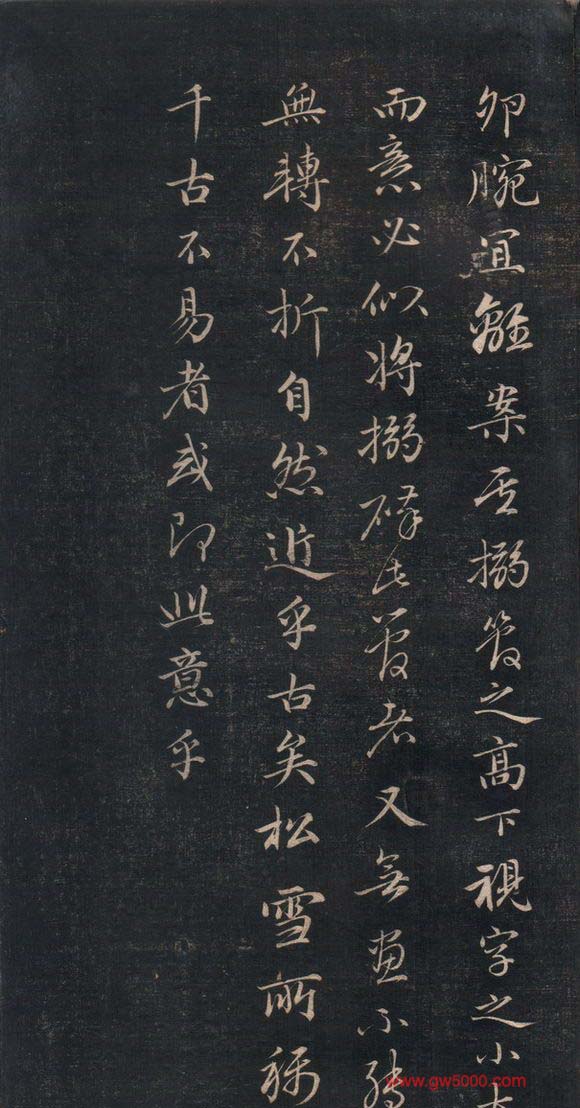 卵腕宜離案其搦管之高下視字之小大
而意必似將搦碎此管者又無畫不轉
無轉不折自然近乎古矣松雪所稱
千古不易者或即此意乎
www.gw5000.com